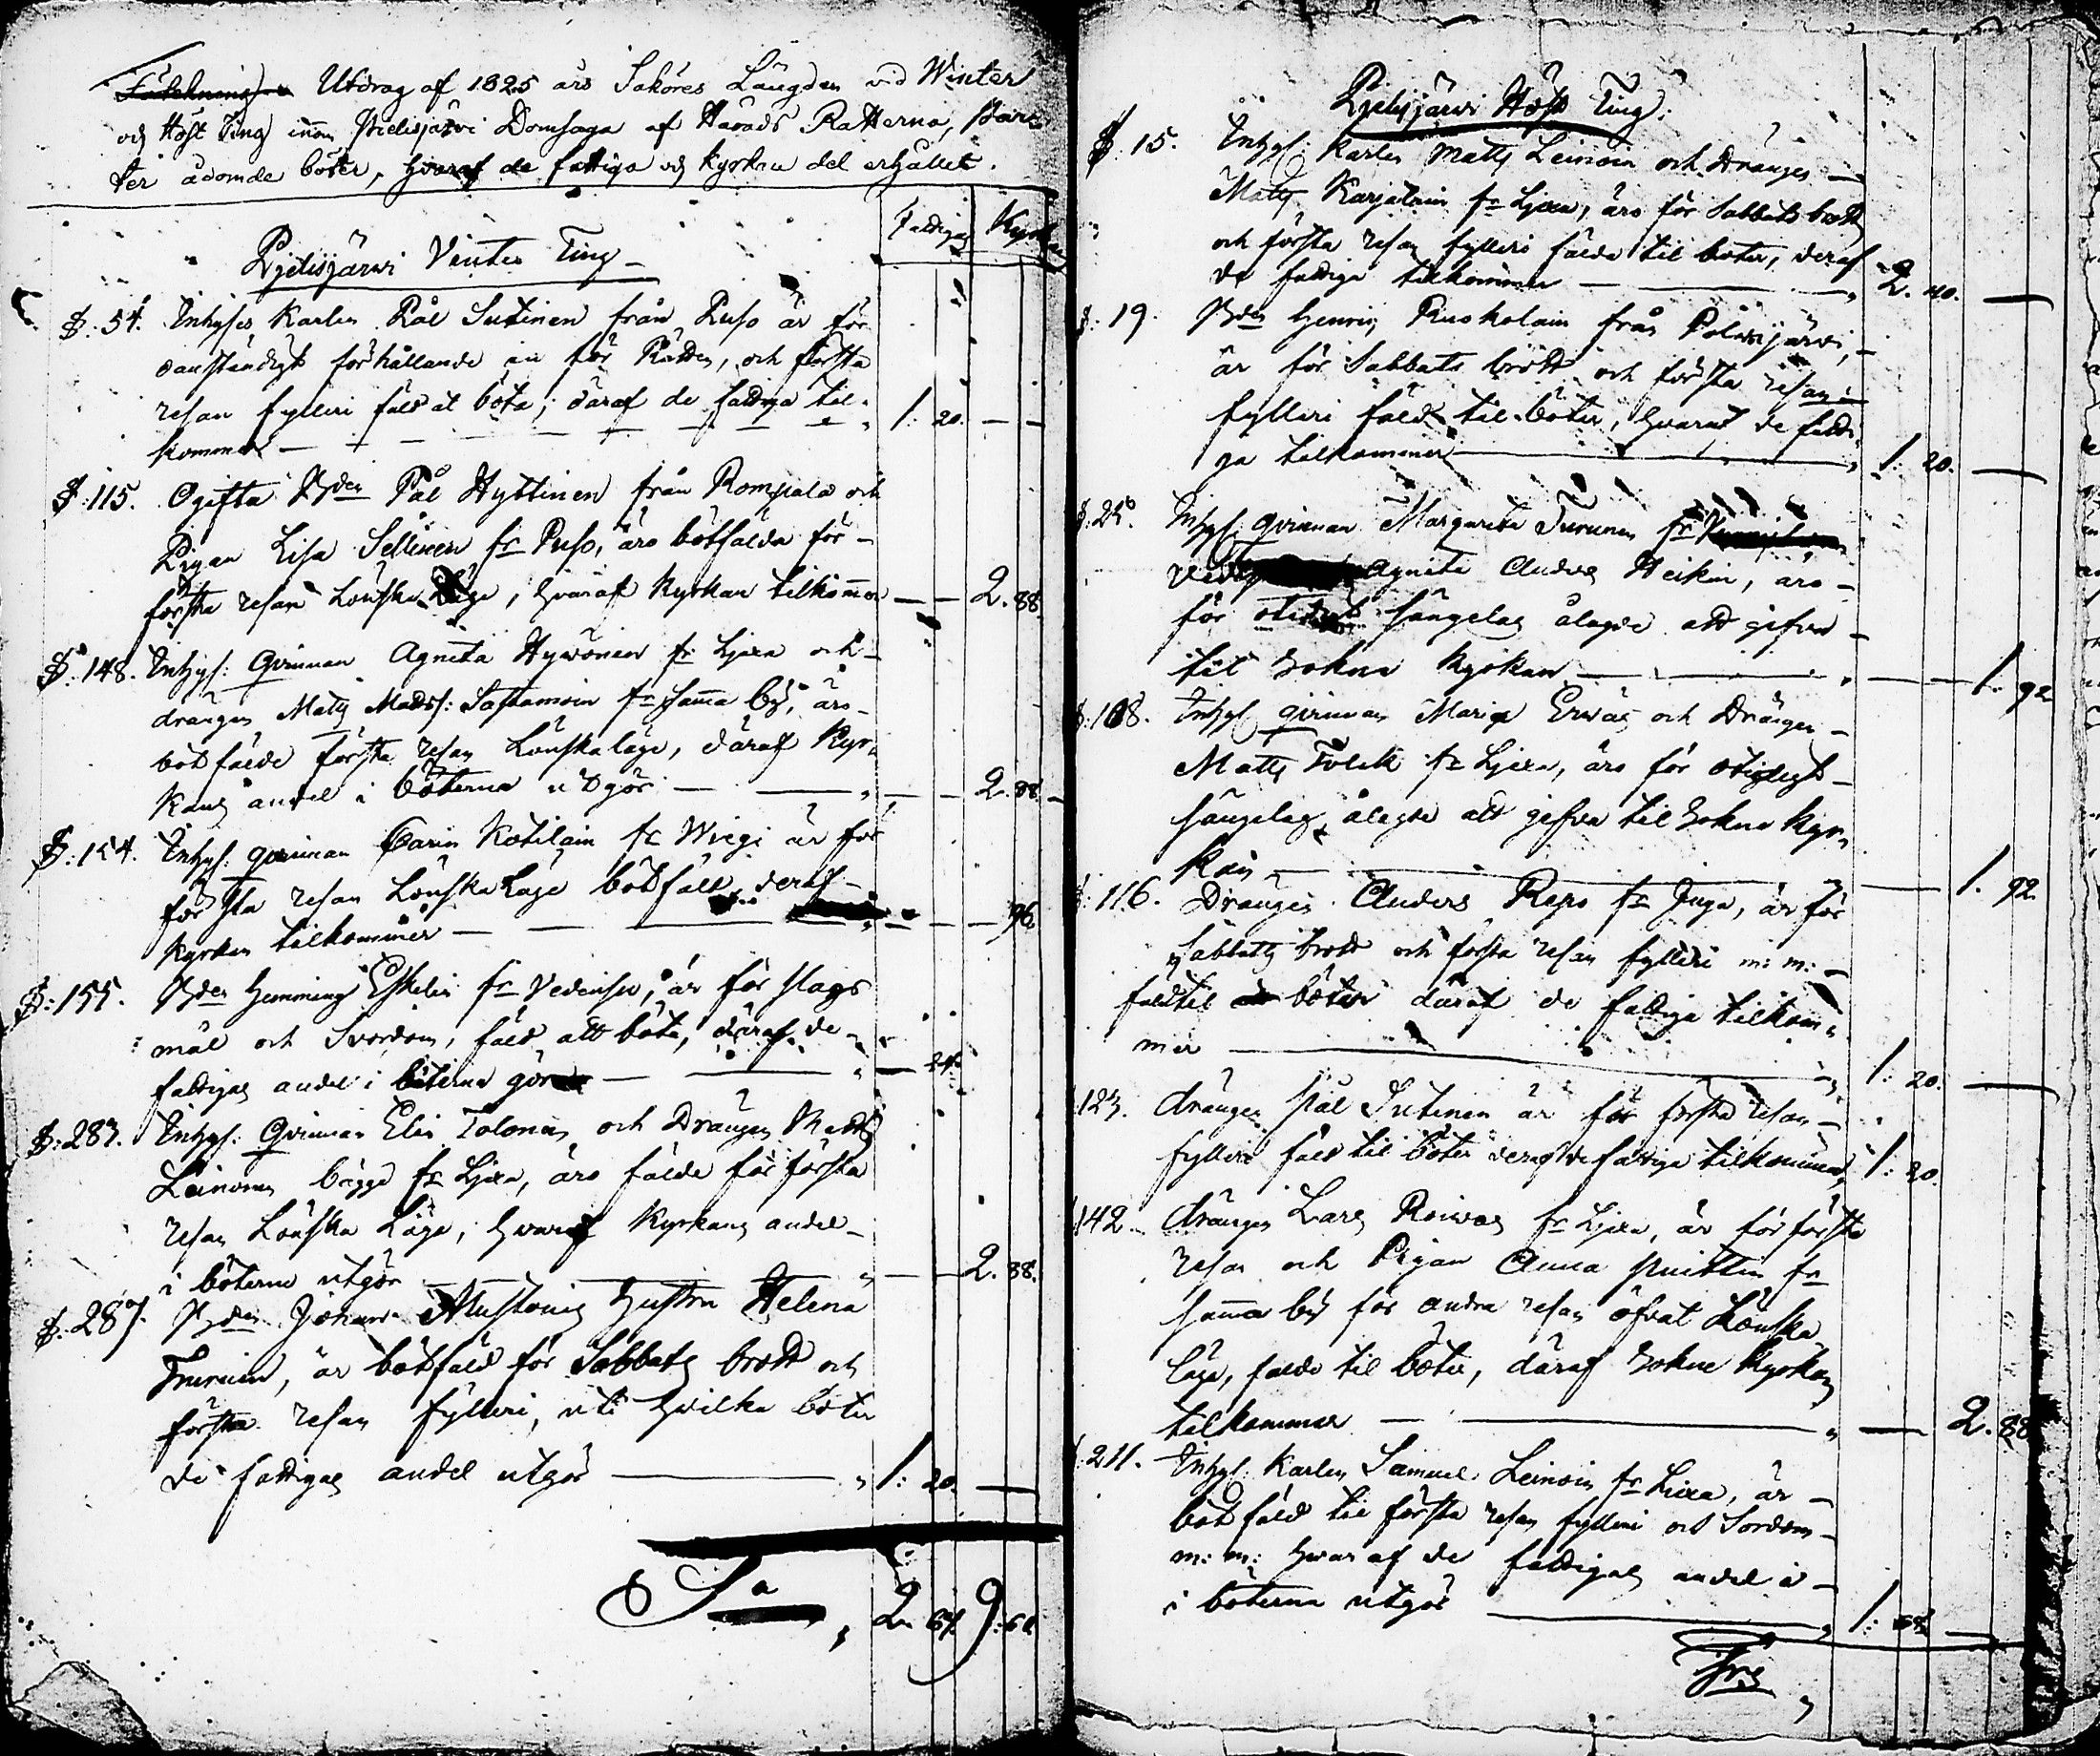 Utdrag af 1825 års Saköres Längden vid Winter
och Höst Ting innom Pielisjärvi Domsaga af Härads Rätterna, Par-
ter ådömde böter, hvaraf de fattiga och kyrkan del erhållit.
Fattiga Kyrkan
Pjelisjärvi Vinter Ting
§: 54. Inhyses Karlen Pål Sutinen från Puso är för
oanständigt förhållande in för Rätten, och första
resan fylleri fäld at böta; däraf de fattiga til-
kommer 1: 20.
§: 115. Ogifta Bden Pål Hyttinen från Rompala och
Pigan Lisa Sellinen fr Puso, äro bötfälda för
första resan Lönska Läge, hvaraf Kyrkan tilkommer 2. 88.
§: 148. Inhys: qvinnan Agneta Hyvönen fr Ljexa och
drängen Matts Madss: Sastamoin fr samma by, äro
bötfälde första resan Lönskaläge, däraf Kyr-
kans andel i böterna utgör 2. 88
§: 154. Inhys: qvinnan Carin Kotilain fr Wiegi är för
första resan Lönska Läge bötfäld, deraf
kyrkan tilkommer 96
§: 155. Bden Henning Eskelin fr Vedensu, är för slags
mål och Svordom, fäld att böta, däraf de
fattigas andel i böterna gör 24.
§: 283. Inhys: Qvinnan Elin Tolonen och Drängen Matts
Leinonen bägge fr Ljexa, äro fälde för första
resan Lönska Läge, hvaraf Kyrkans andel
i böterna utgör 2. 88.
§: 287. Bden Johan Mustonens hustru Helena
Turunen, är bötfäld för Sabbats brott och
första resan fylleri, uti hvilka böter
de fattigas andel utgör 1: 20.
Sa 2. 64. 9: 60
Pjelisjärvi Höst Ting:
§. 15. Inhys: Karlen Matts Leinoin och Drängen
Matts Karjalain fr Ljexa, äro för Sabbats brott
och första resan fylleri fälda til böter, deraf
de fattiga tilkommer 2. 40.
§: 19. Bden Henric Ruokolain från Polvijärvi,
är för Sabbats brott och första resan
fylleri fäld til böter, hvaraf de fatti-
ga tilkommer 1: 20.
§: 25. Inhys: qvinnan Margareta Turunen fr
Agneta Anders Heikin, äro
för otidigt sängelag ålagde att gifva
til Sokne Kyrkan 1. 92
§: 108. Inhys: qvinnan Maria Ervas och Drängen
Matts Tolck fr Ljexa, äro för otidigt
sängelag, ålagde att gifva til Sokne kyr-
kan 1. 92.
§: 116. Drängen Anders Repo fr Juga, är för
Sabbats brott och första resan fylleri m: m:
fäld til böter däraf de fattiga tilkom-
mer 1: 20.
123. drängen Pål Sutinen är för första resan
fylleri fäld til böter deraf de fattiga tilkommer, 1: 20.
142. drängen Lars Roivas fr Ljexa, är för första
resan och Pigan Anna Puittin fr
samma by för andra resan öfvat Lönska
läge, fälde til böter, däraf Sokne kyrkan
tilkommer 2. 88
§: 211. Inhys: Karlen Samuel Leinoin fr Lixa, är
böt fäld til första resan fylleri och Sordom
m: m: hvar af de fattigas andel i
i böterna utgör 1:
Trs